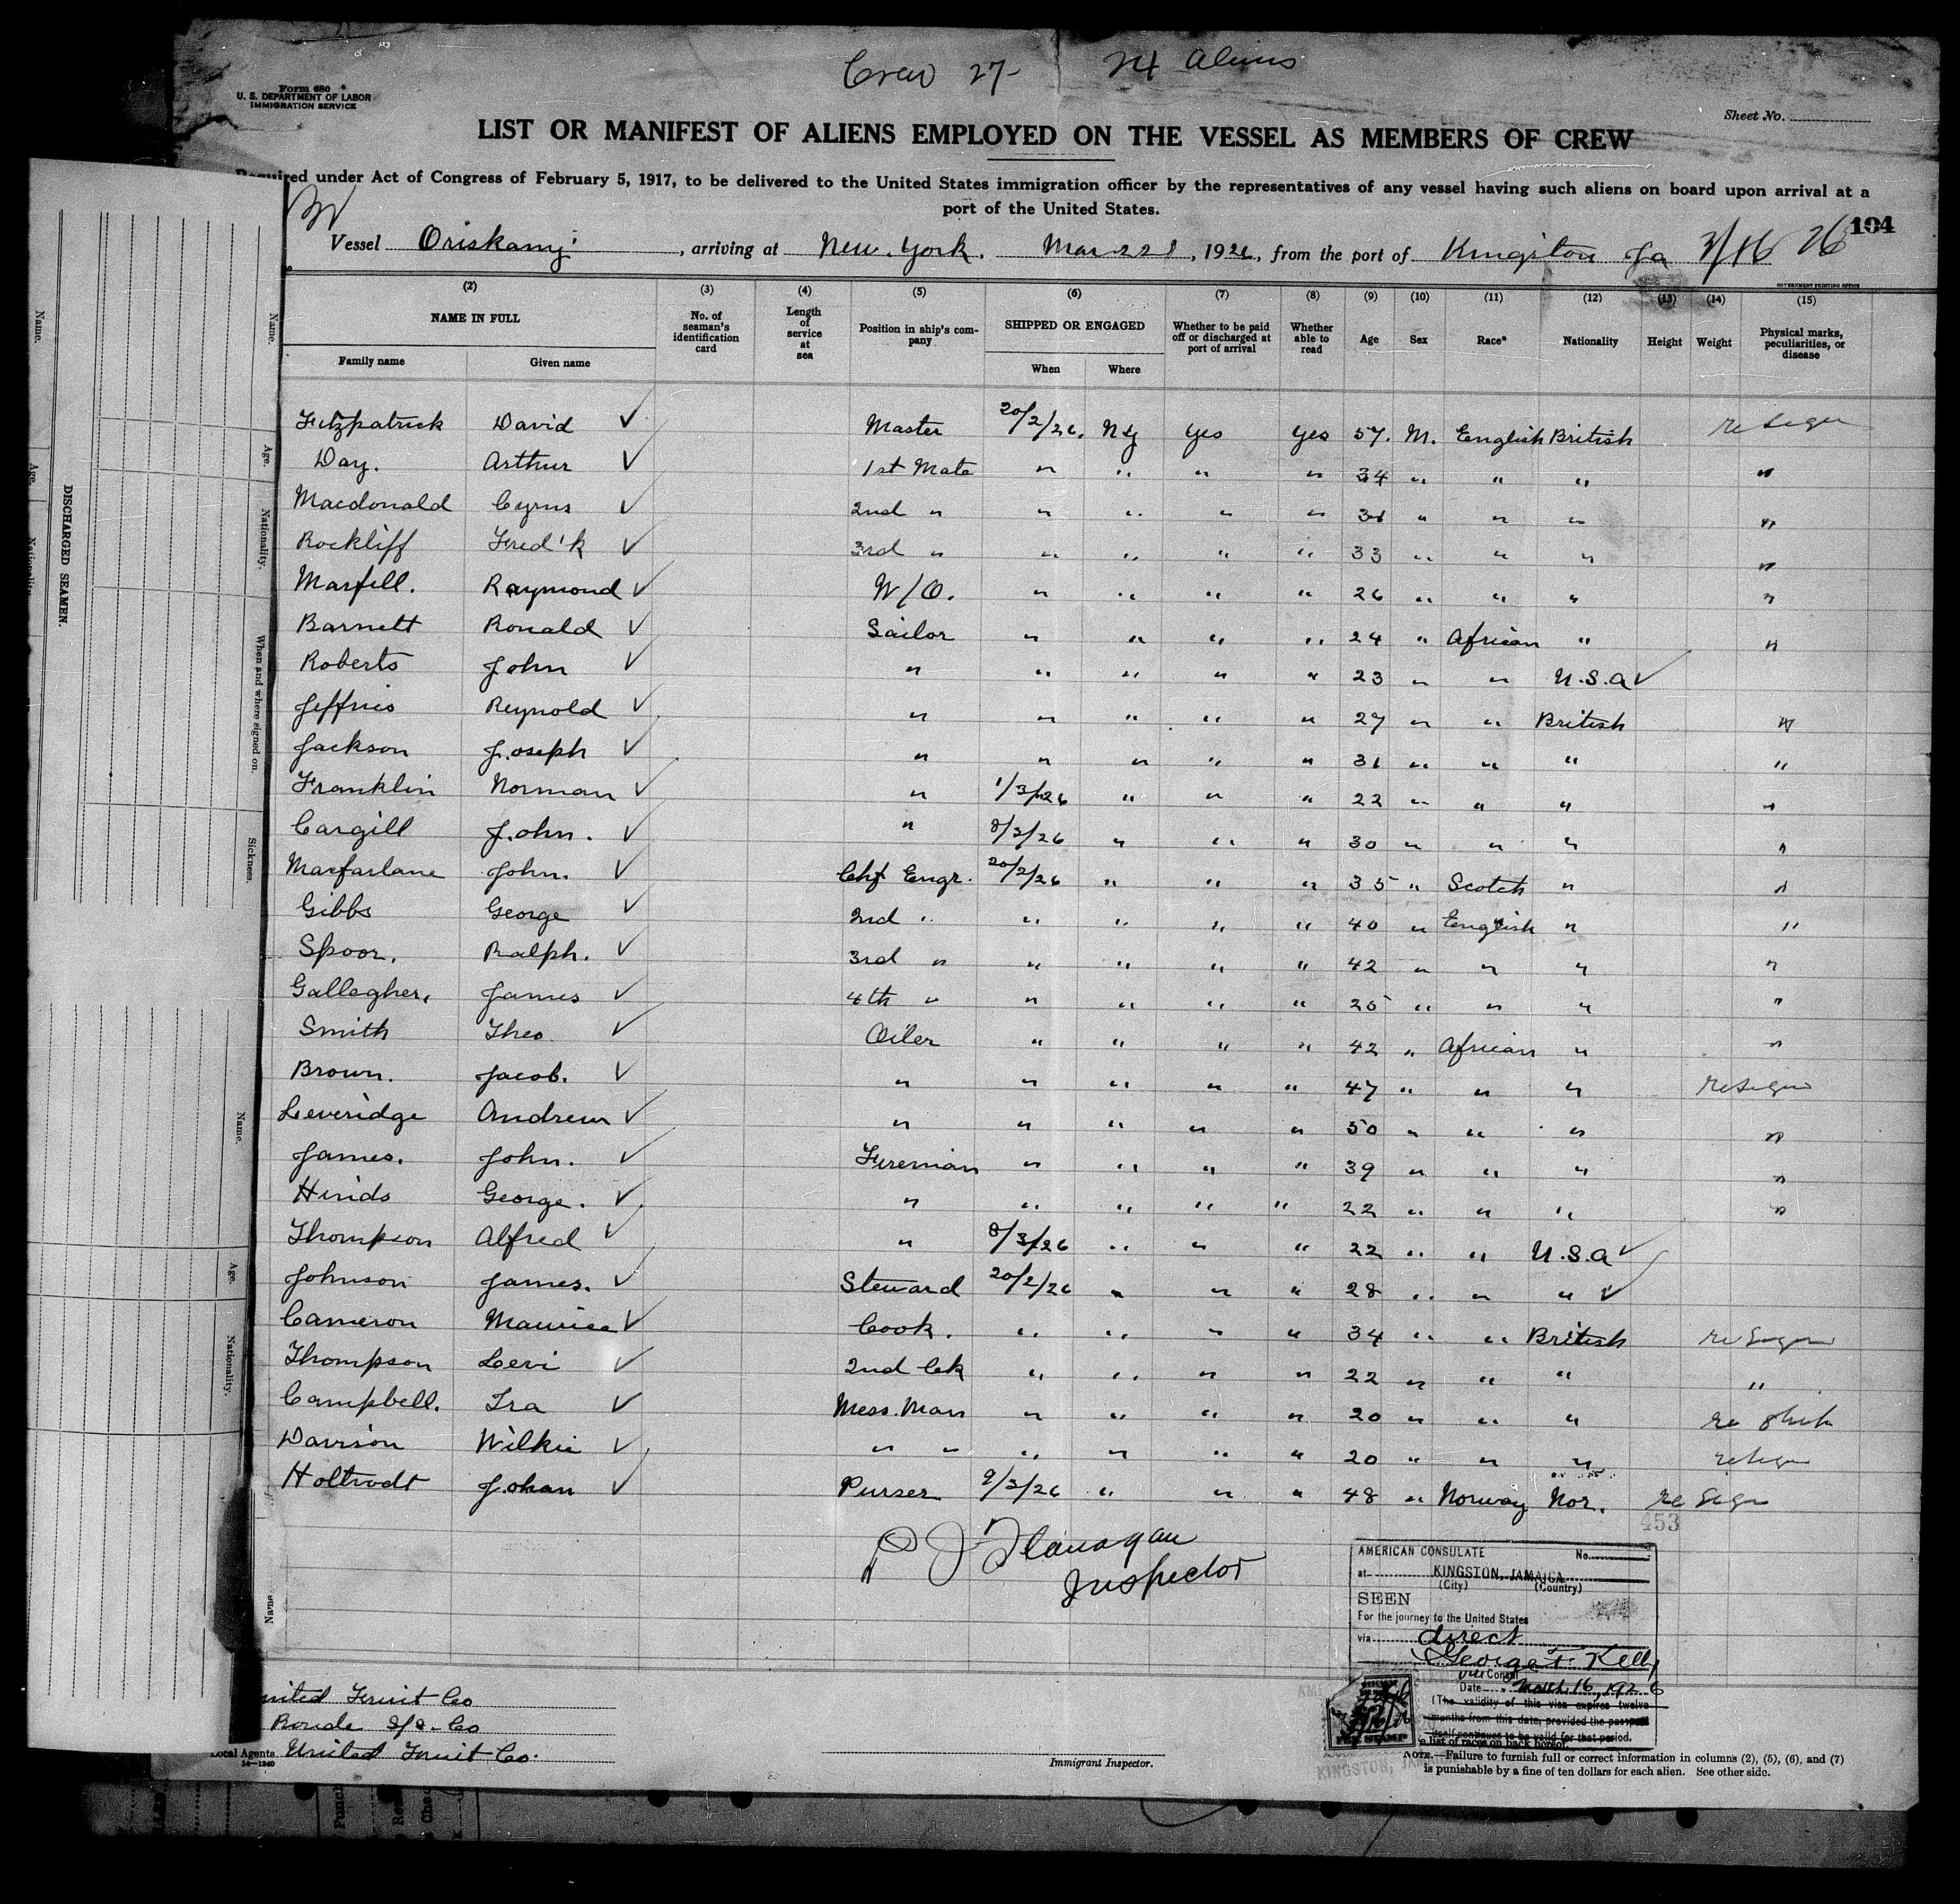 Crew 27- 24 Aliens
Form 680
U. S. DEPARTMENT OF LABOR
IMMIGRATION SERVICE
Sheet No.
LIST OR MANIFEST OF ALIENS EMPLOYED ON THE VESSEL AS MEMBERS OF CREW
Required under Act of Congress of February 5, 1917, to be delivered to the United States immigration officer by the representatives of any vessel having such aliens on board upon arrival at a
port of the United States.
104
Vessel Oriskany, arriving at New York. Mar 22d, 1926, from the port of Kingston Ja 3/16 26
GOVERNMENT PRINTING OFFICE
(2) (3) (4) (5) (6) (7) (8) (9) (10) (11) (12) (13) (14) (15)
NAME IN FULL No. of seaman's identification card Length of service at sea Position in ship's company SHIPPED OR ENGAGED Whether to be paid off or discharged at port of arrival Whether able to read Age Sex Race* Nationality Height Weight Physical marks, peculiarities, or disease
Family name Given name When Where
Fitzpatrick David ✓ Master 20/2/26. NY Yes Yes 57. M. English British re sign
Day. Arthur ✓ 1st Mate " " " " 34 " " " "
Macdonald Cyrus ✓ 2nd " " " " " 31 " " " "
Rockliff Fred'k ✓ 3rd " " " " " 33 " " " "
Marfell. Raymond ✓ W/O. " " " " 26 " " " "
Barnett Ronald ✓ Sailor " " " " 24 " African " "
Roberts John ✓ " " " " " 23 " " U.S.A ✓
Jeffries Reynold ✓ " " " " " 27 " " British "
Jackson Joseph ✓ " " " " " 31 " " " "
Franklin Norman ✓ " 1/3/26 " " " 22 " " " "
Cargill John. ✓ " 8/3/26 " " " 30 " " " "
Macfarlane John. ✓ Chf Engr. 20/2/26 " " " 35 " Scotch " "
Gibbs George ✓ 2nd " " " " " 40 " English " "
Spoor. Ralph. ✓ 3rd " " " " " 42 " " " "
Gallagher, James ✓ 4th " " " " " 25 " " " "
Smith Theo ✓ Oiler " " " " 42 " African " "
Brown. Jacob. ✓ " " " " " 47 " " " resign
Leveridge Andrew ✓ " " " " " 50 " " " "
James. John. ✓ Fireman " " " " 39 " " " "
Hinds George. ✓ " " " " " 22 " " " "
Thompson Alfred ✓ " 8/3/26 " " " 22 " " U.S.A ✓
Johnson James. ✓ Steward 20/2/26 " " " 28 " " " ✓
Cameron Maurice ✓ Cook. " " " " 34 " " British re sign
Thompson Levi ✓ 2nd Ck " " " " 22 " " " "
Campbell. Ira ✓ Mess. Man " " " " 20 " " " re ship
Davison Wilkie ✓ " " " " " " 20 " " " resign
Holtrodt Johan ✓ Purser 9/3/26 " " " 48 " Norway Nor. re sign
453
P J Flanagan
Inspector
AMERICAN CONSULATE No.
at KINGSTON, JAMAICA
(City) (Country)
SEEN
For the journey to the United States
via direct
George T. Kelly
Vice Consul
Date March 16, 1926
(The validity of this visa expires twelve
months from this date, provided the passport
itself continues to be valid for that period.
FEE STAMP
KINGSTON, JAMAICA
United Fruit Co
Ronde S/S. Co
Local Agents. United Fruit Co.
14—1240
Immigrant Inspector.
e list of races on back hereof.
NOTE.—Failure to furnish full or correct information in columns (2), (5), (6), and (7)
is punishable by a fine of ten dollars for each alien. See other side.
DISCHARGED SEAMEN.
Name. Age. Nationality. When and where signed on. Sickness.
Name. Age. Nationality.
Name